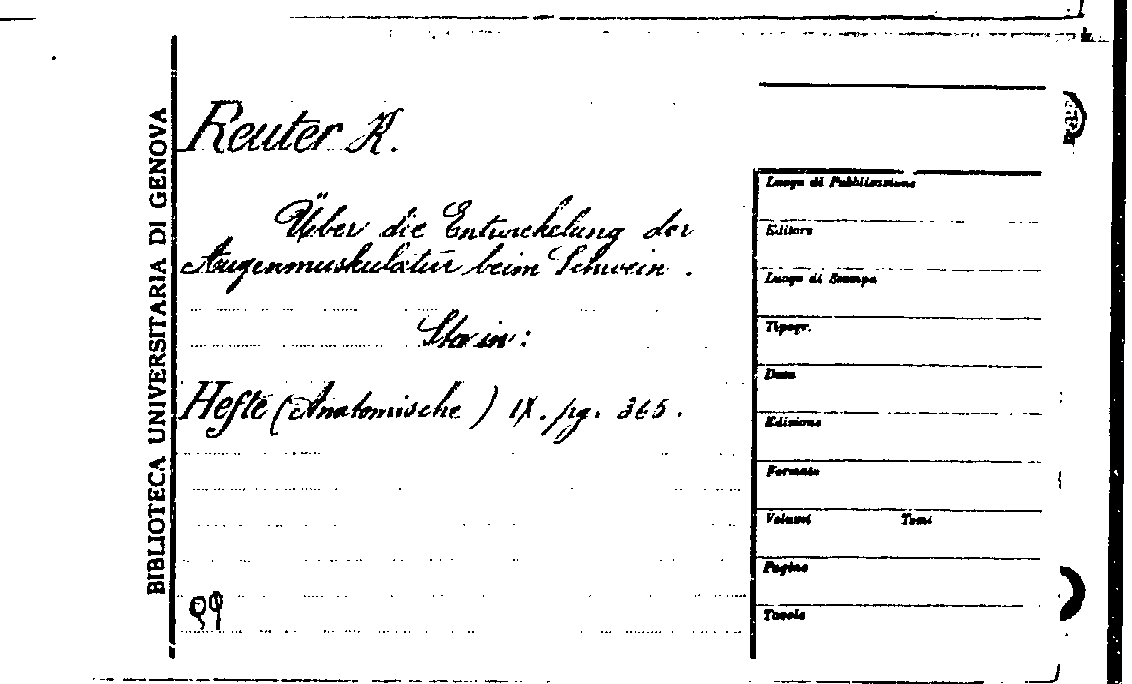 BIBLIOTECA UNIVERSITARIA DI GENOVA
Reuter K.
Über die Entwickelung der
Augenmuskulatur beim Schwein.
Sta in:
Hefte (Anatomische) IX. pg. 365.
99
Luogo di Pubblicazione
Editore
Luogo di Stampa
Tipogr.
Data
Edizione
Formato
Volumi Tomi
Pagine
Tavole